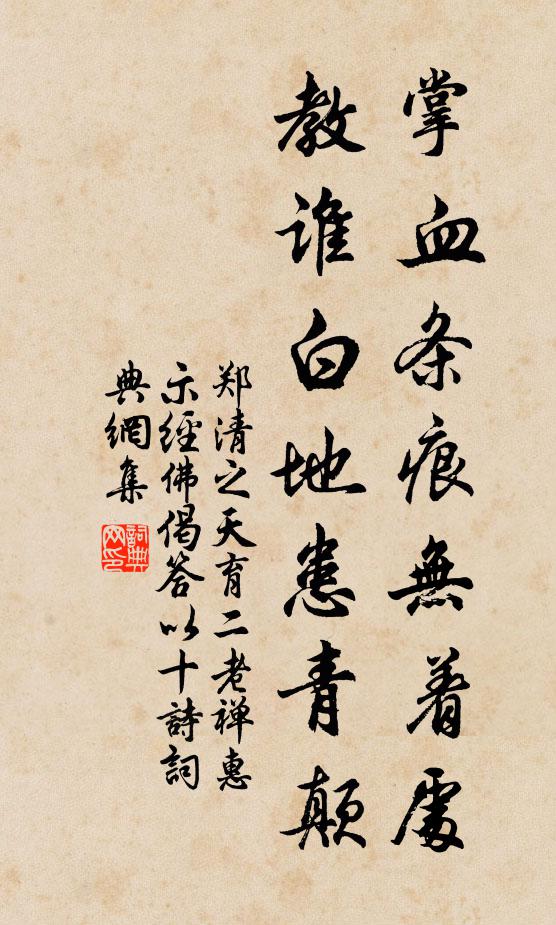 掌血条痕無着處
教谁白地患青颠
郑清之天育二老禅惠
示經佛偈答以十詩詞
典網集
詞典
网印